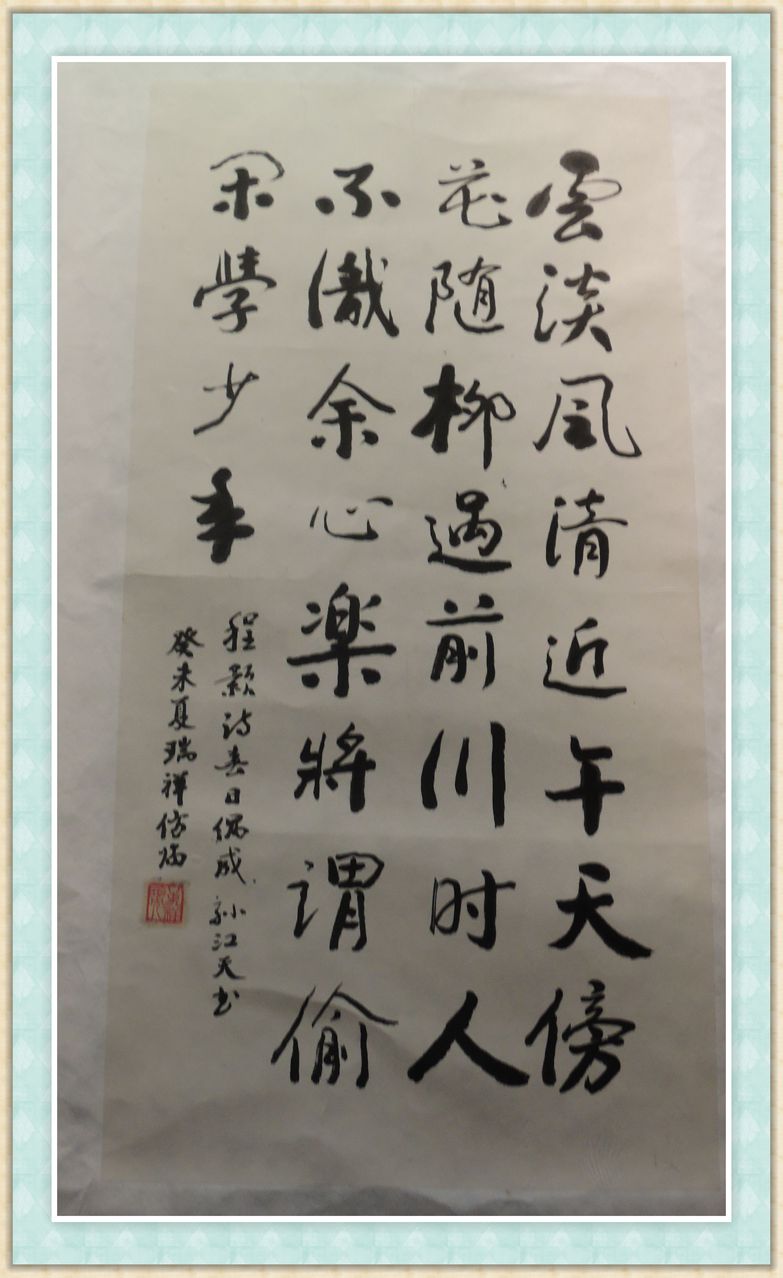 雲淡風清近午天傍
花随柳過前川时人
不識余心楽將謂偷
閑學少年
程颢诗春日偶成 孙江天书
癸未夏瑞祥仿